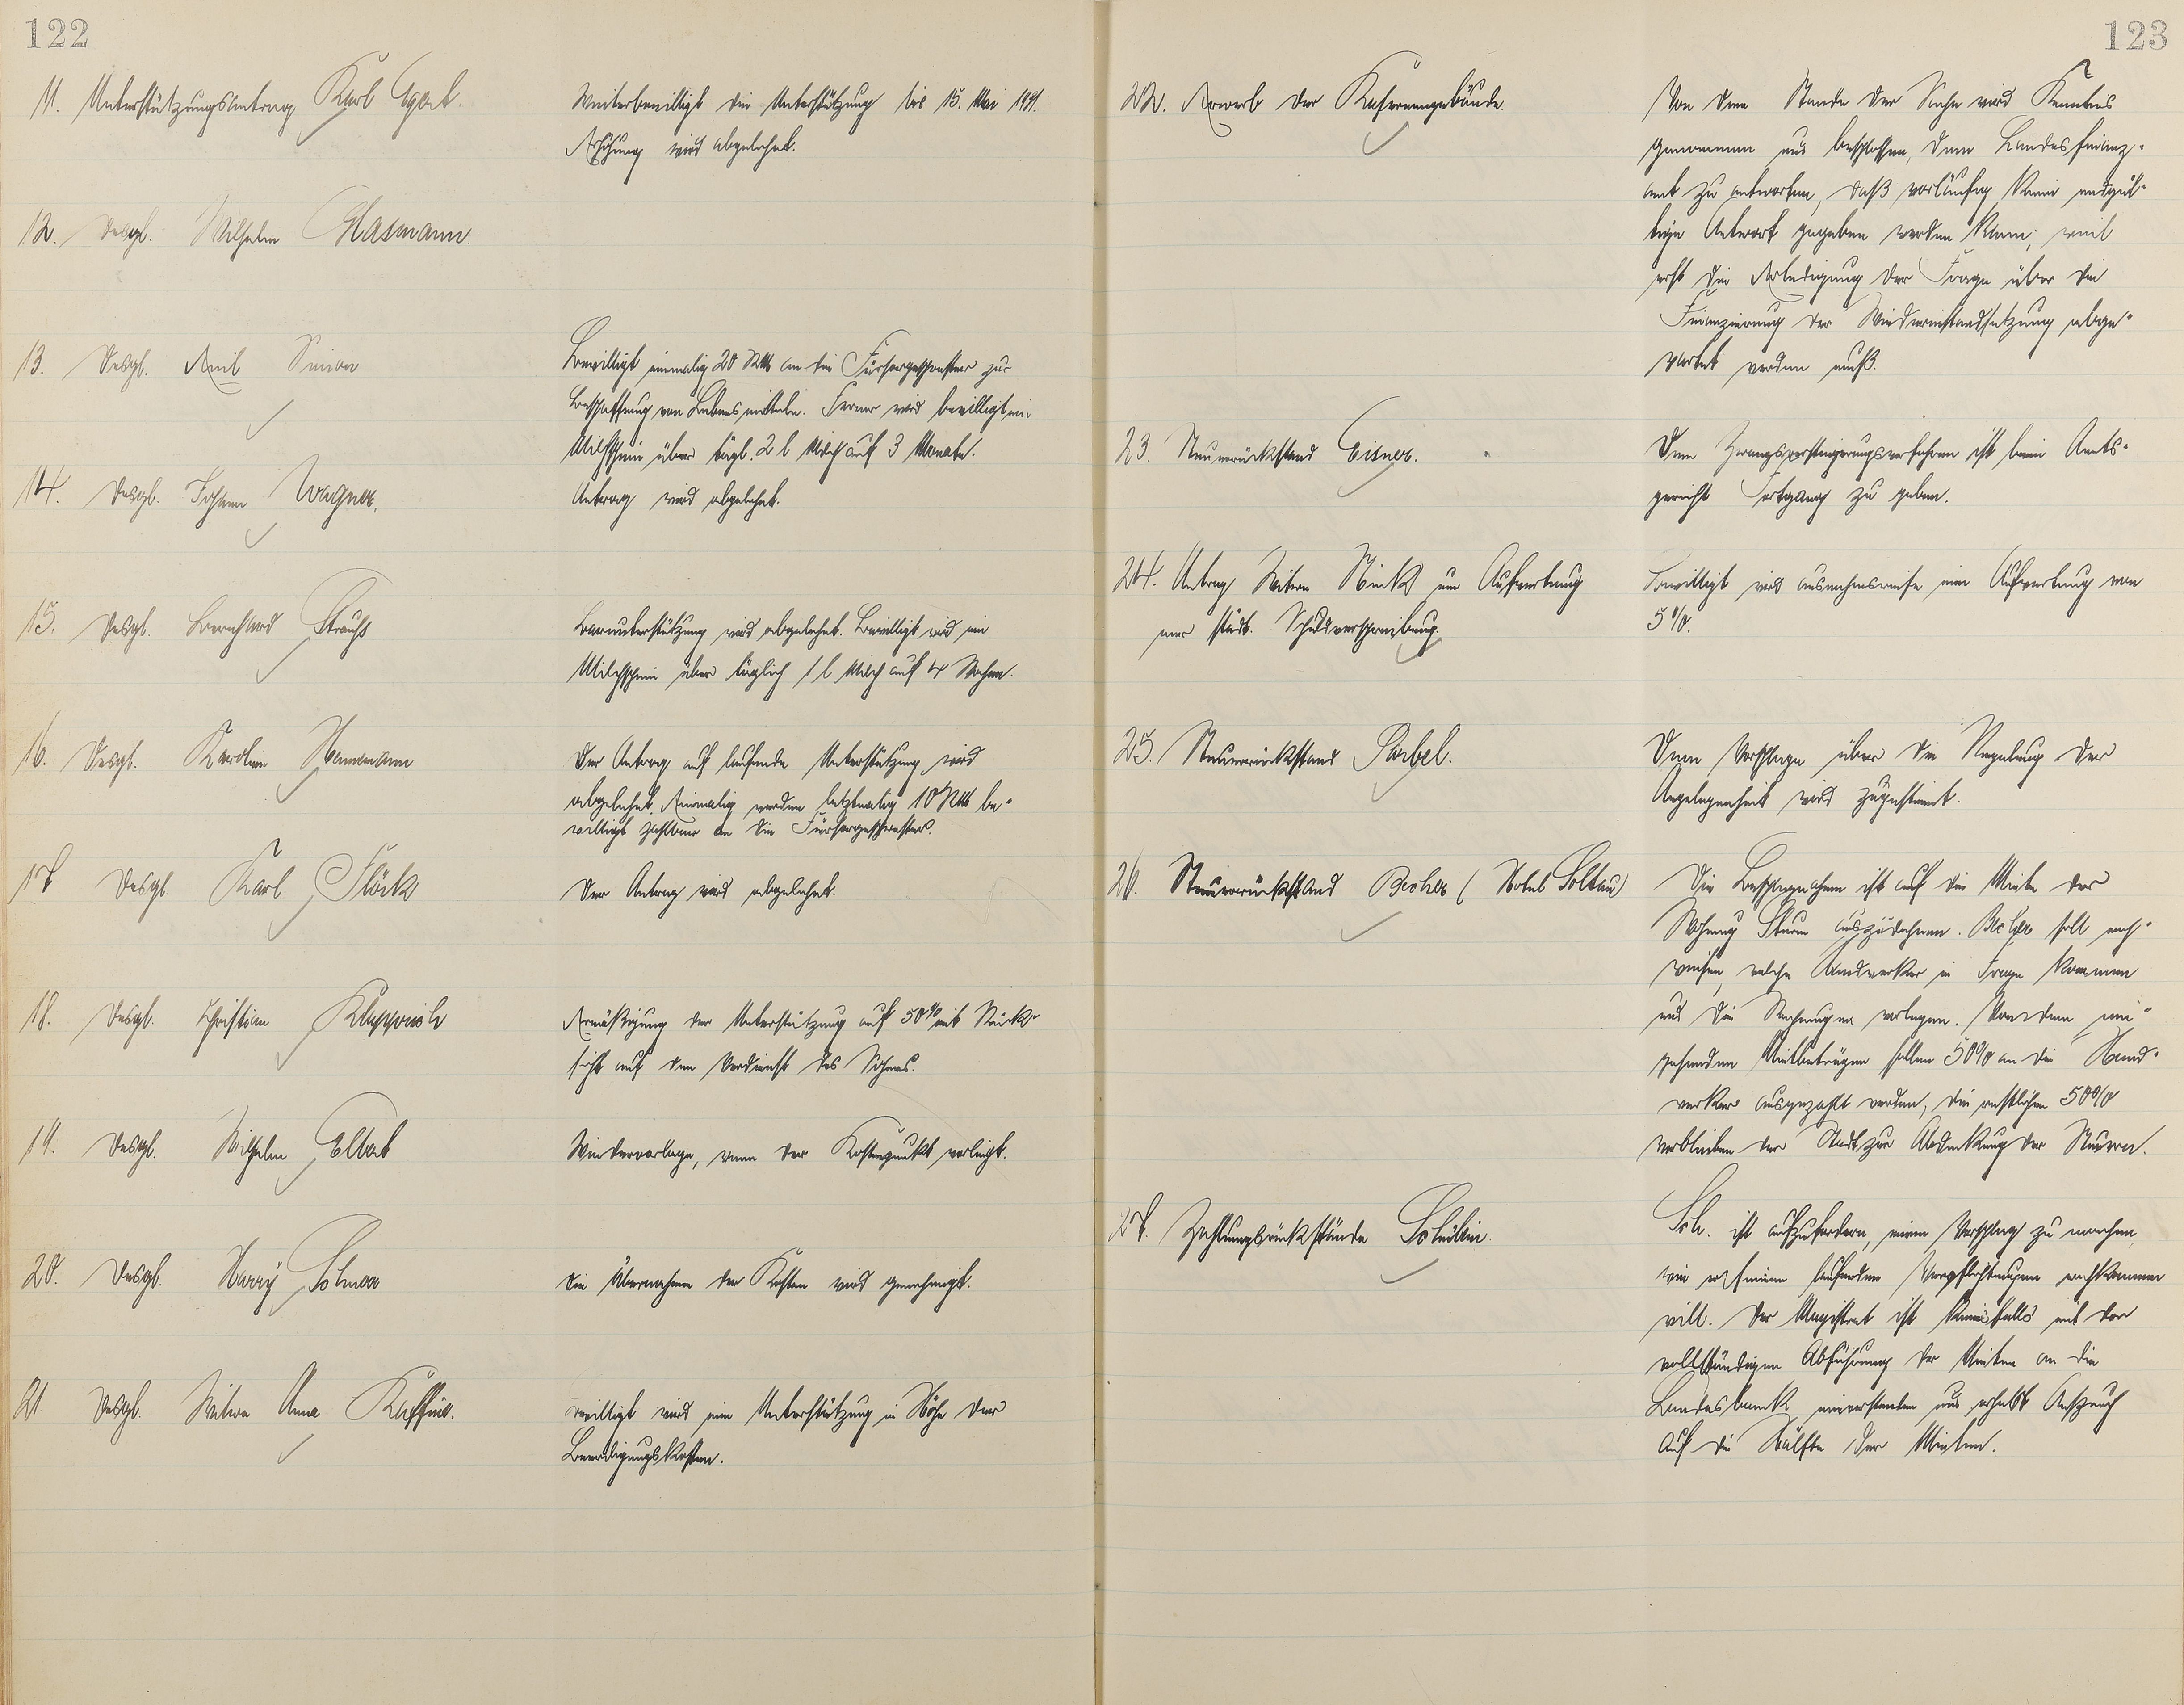 122
11. Unterstützungsantrag Karl Egert.
Weiterbewilligt die Unterstützung bis 15. Mai 1931.
Erhöhung wird abgelehnt.
12. Desgl. Wilhelm Glasmann.
13. Desgl. Emil Simon
Bewilligt einmalig 20 RM an die Fürsorgeschwester zur
Beschaffung von Lebensmitteln. Ferner wird bewilligt ein
Milchschein über tägl. 2 l Milch auf 3 Monate.
14. Desgl. Johann Wagner.
Antrag wird abgelehnt.
15. Desgl. Bernhard Strauß
Barunterstützung wird abgelehnt. Bewilligt wird ein
Milchschein über täglich 1 l Milch auf 4 Wochen.
16. Desgl. Karoline Hennemann
Der Antrag auf laufende Unterstützung wird
abgelehnt. Einmalig werden letztmalig 10 RM be-
willigt zahlbar an die Fürsorgeschwester.
17 Desgl. Karl Flöck
Der Antrag wird abgelehnt.
18. Desgl. Christian Klapproth
Ermäßigung der Unterstützung auf 50% mit Rück-
sicht auf den Verdienst des Sohnes.
19. Desgl. Wilhelm Elbert
Wiedervorlage, wenn der Kostenpunkt vorliegt.
20. Desgl. Harry
Die Übernahme der Kosten wird genehmigt.
21 Desgl. Witwe Anna
Bewilligt wird eine Unterstützung in Höhe der
Beerdigungskosten.
123
22. Erwerb der Kasernengebäude.
Von dem Stande der Sache wird Kenntnis
genommen und beschlossen, dem Landesfinanz-
amt zu antworten, daß vorläufig keine endgül-
tige Antwort gegeben werden kann, weil
erst die Erledigung der Frage über die
Finanzierung der Wiederinstandsetzung abge-
wartet werden muß.
23. Steuerrückstand Eisner.
Dem Zwangsversteigerungsverfahren ist beim Amts-
gericht Fortgang zu geben.
24. Antrag Witwe um Aufwertung
einer städt. Schuldverschreibung.
Bewilligt wird ausnahmsweise eine Aufwertung von
5%.
25. Steuerrückstand Sarbel.
Dem Vorschlage über die Regelung der
Angelegenheit wird zugestimmt.
26. Steuerrückstand Becher (Hotel Soltau)
Die Beschlagnahme ist auf die Miete der
Wohnung Sturm auszudehnen. Becher soll nach-
weisen, welche Handwerker in Frage kommen
und die Rechnungen vorlegen. Von den ein-
gehenden Mietbeträgen sollen 50% an die Hand-
werker ausgezahlt werden, die restlichen 50%
verbleiben der Stadt zur Abdeckung der Steuern.
27. Zahlungsrückstände Schüllein.
Sch. ist aufzufordern, einen Vorschlag zu machen,
wie er seinen laufenden Verpflichtungen nachkommen
will. Der Magistrat ist keinesfalls mit der
vollständigen Abführung der Mieten an die
Landesbank einverstanden und erhebt Anspruch
auf die Hälfte der Mieten.